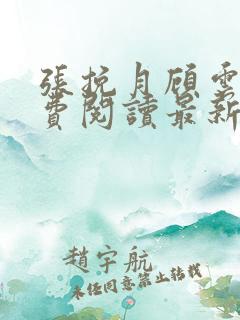 張挽月顾雲
費閱讀最新
趙宇航
未经同意禁止转载